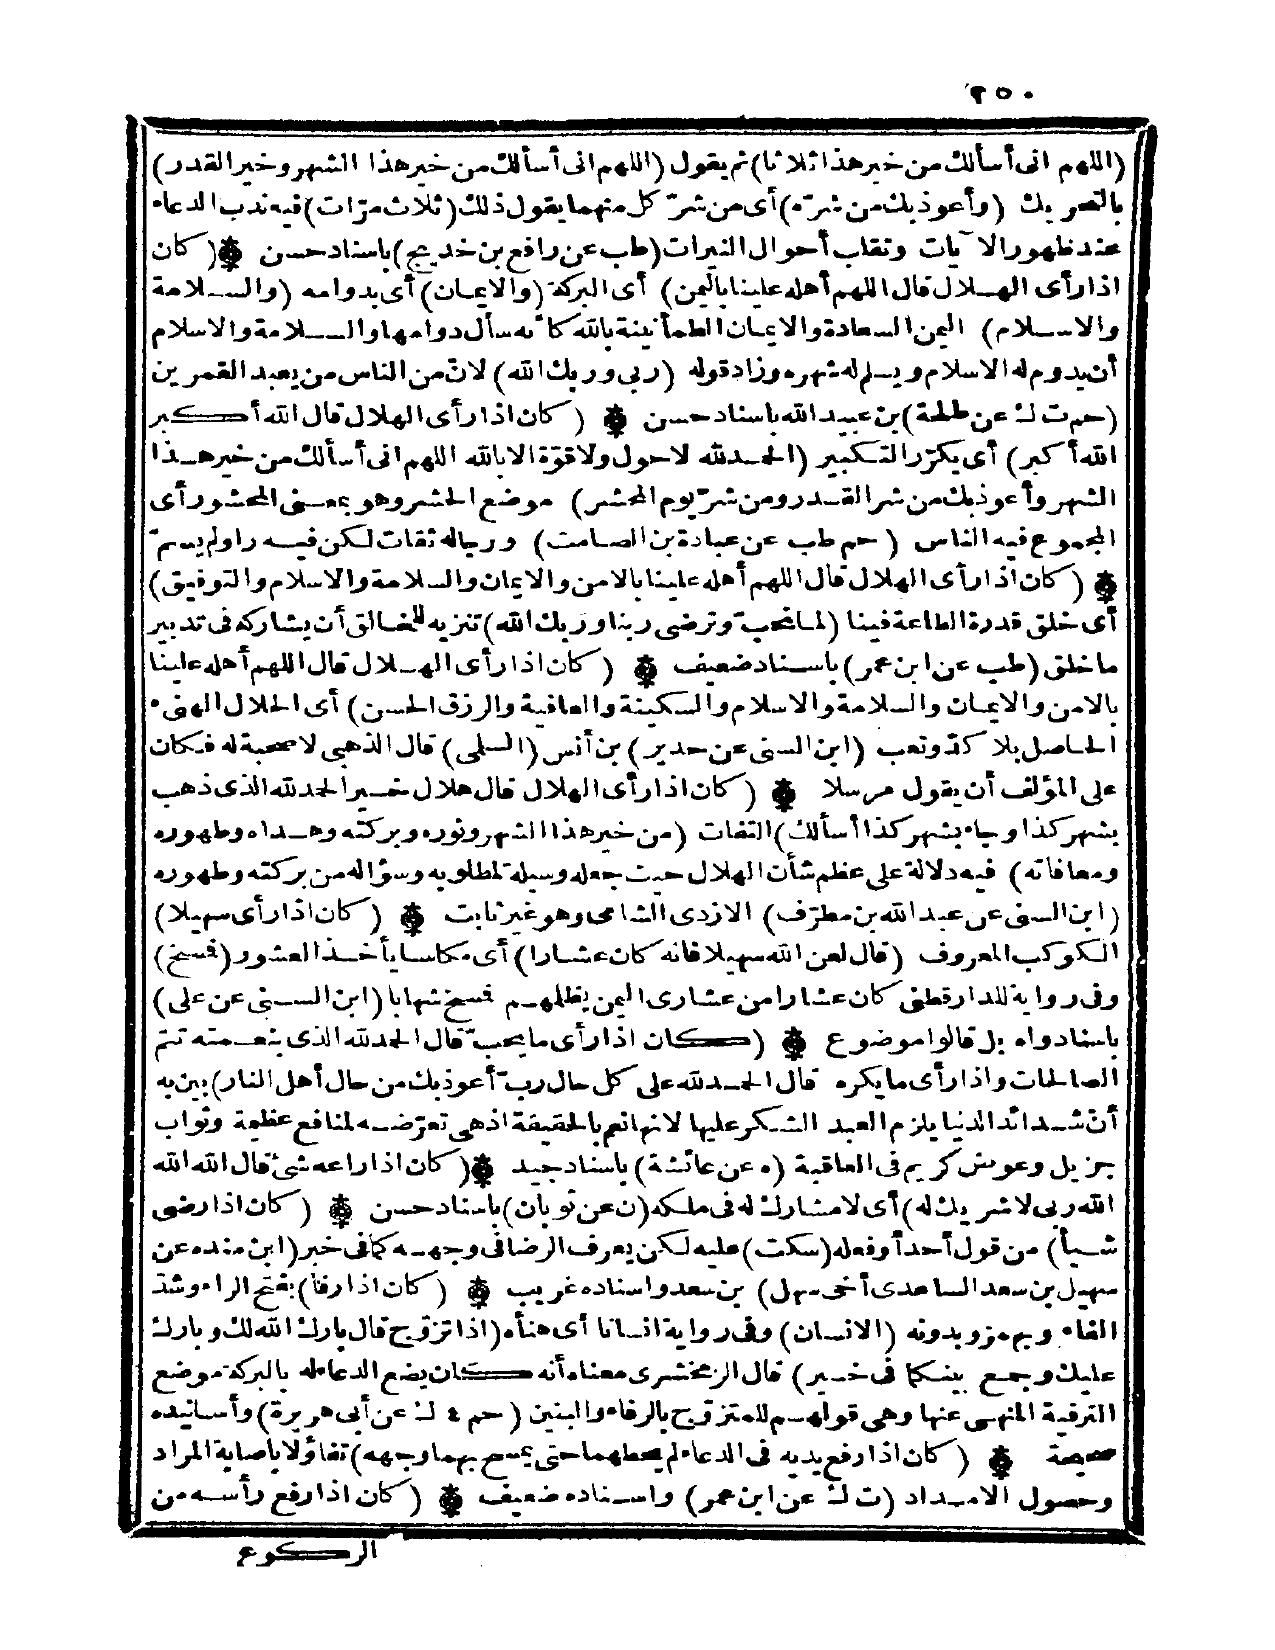 ٢٥٠
(اللهم انى أسألك من خير هذا ثلاثا) ثم يقول (اللهم انى أسألك من خير هذا الشهر وخير القدر)
بالتحريك (وأعوذ بك من شره) أى من شرّ كل منهما يقول ذلك (ثلاث مرّات) فيه ندب الدعاء
عند ظهور الآيات وتقلب أحوال النيرات (طب عن رافع بن خديج) باسناد حسن ۞ (كان
اذا رأى الهلال قال اللهم أهله علينا باليمن) أى البركة (والايمان) أى بدوامه (والسلامة
والاسلام) اليمن السعادة والايمان الطمأنينة بالله كأنه سأل دوامها والسلامة والاسلام
أن يدوم له الاسلام ويسلم له شهره وزاد قوله (ربى وربك الله) لانّ من الناس من يعبد القمرين
(حم ت ك عن طلحة) بن عبيد الله باسناد حسن ۞ (كان اذا رأى الهلال قال الله أكبر
الله أكبر) أى يكرّر التكبير (الحمد لله لا حول ولا قوّة الا بالله اللهم انى أسألك من خير هذا
الشهر وأعوذ بك من شر القدر ومن شرّ يوم المحشر) موضع الحشر وهو بمعنى المحشور أى
المجموع فيه الناس (حم طب عن عبادة بن الصامت) ورجاله ثقات لكن فيه راو لم يسمّ
۞ (كان اذا رأى الهلال قال اللهم أهله علينا بالامن والايمان والسلامة والاسلام والتوفيق)
أى خلق قدرة الطاعة فينا (لما تحبّ وترضى ربنا وربك الله) تنزيه للخالق أن يشاركه فى تدبير
ما خلق (طب عن ابن عمر) باسناد ضعيف ۞ (كان اذا رأى الهلال قال اللهم أهله علينا
بالامن والايمان والسلامة والاسلام والسكينة والعافية والرزق الحسن) أى الحلال الهنىء
الحاصل بلا كدّ وتعب (ابن السنى عن حدير) بن أنس (السلمى) قال الذهبى لا صحبة له فكان
على المؤلف أن يقول مرسلا ۞ (كان اذا رأى الهلال قال هلال خير الحمد لله الذى ذهب
بشهر كذا وجاء بشهر كذا أسألك) التفات (من خير هذا الشهر ونوره وبركته وهداه وطهوره
ومعافاته) فيه دلالة على عظم شأن الهلال حيث جعله وسيلة لمطلوبه وسؤاله من بركته وطهوره
(ابن السنى عن عبد الله بن مطرّف) الازدى الشامى وهو غير ثابت ۞ (كان اذا رأى سهيلا)
الكوكب المعروف (قال لعن الله سهيلا فانه كان عشارا) أى مكاسا يأخذ العشور (فمسخ)
وفى رواية للدارقطنى كان عشارا من عشارى اليمن يظلمهم فمسخ شهابا (ابن السنى عن على)
باسناد واه بل قالوا موضوع ۞ (كان اذا رأى ما يحبّ قال الحمد لله الذى بنعمته تتم
الصالحات واذا رأى ما يكره قال الحمد لله على كل حال ربّ أعوذ بك من حال أهل النار) بين به
أن شدائد الدنيا يلزم العبد الشكر عليها لانها نعم بالحقيقة اذ هى تعرّضه لمنافع عظيمة وثواب
جزيل وعوض كريم فى العاقبة (ه عن عائشة) باسناد جيد ۞ (كان اذا راعه شئ قال الله الله
الله ربى لا شريك له) أى لا مشارك له فى ملكه (ن عن ثوبان) باسناد حسن ۞ (كان اذا رضى
شيأ) من قول أحد أو فعله (سكت) عليه لكن يعرف الرضا فى وجهه كما فى خبر (ابن منده عن
سهيل بن سعد الساعدى أخى سهل) بن سعد واسناده غريب ۞ (كان اذا رفأ) بفتح الراء وشد
الفاء وبهمز وبدونه (الانسان) وفى رواية انسانا أى هنأه (اذا تزوّج قال بارك الله لك وبارك
عليك وجمع بينكما فى خير) قال الزمخشرى معناه أنه كان يضع الدعاء له بالبركة موضع
الترفية المنهى عنها وهى قولهم للمتزوّج بالرفاء والبنين (حم ٤ ك عن أبى هريرة) وأسانيده
صحيحة ۞ (كان اذا رفع يديه فى الدعاء لم يحطهما حتى يمسح بهما وجهه) تفاؤلا باصابة المراد
وحصول الامداد (ت ك عن ابن عمر) واسناده ضعيف ۞ (كان اذا رفع رأسه من
الركوع